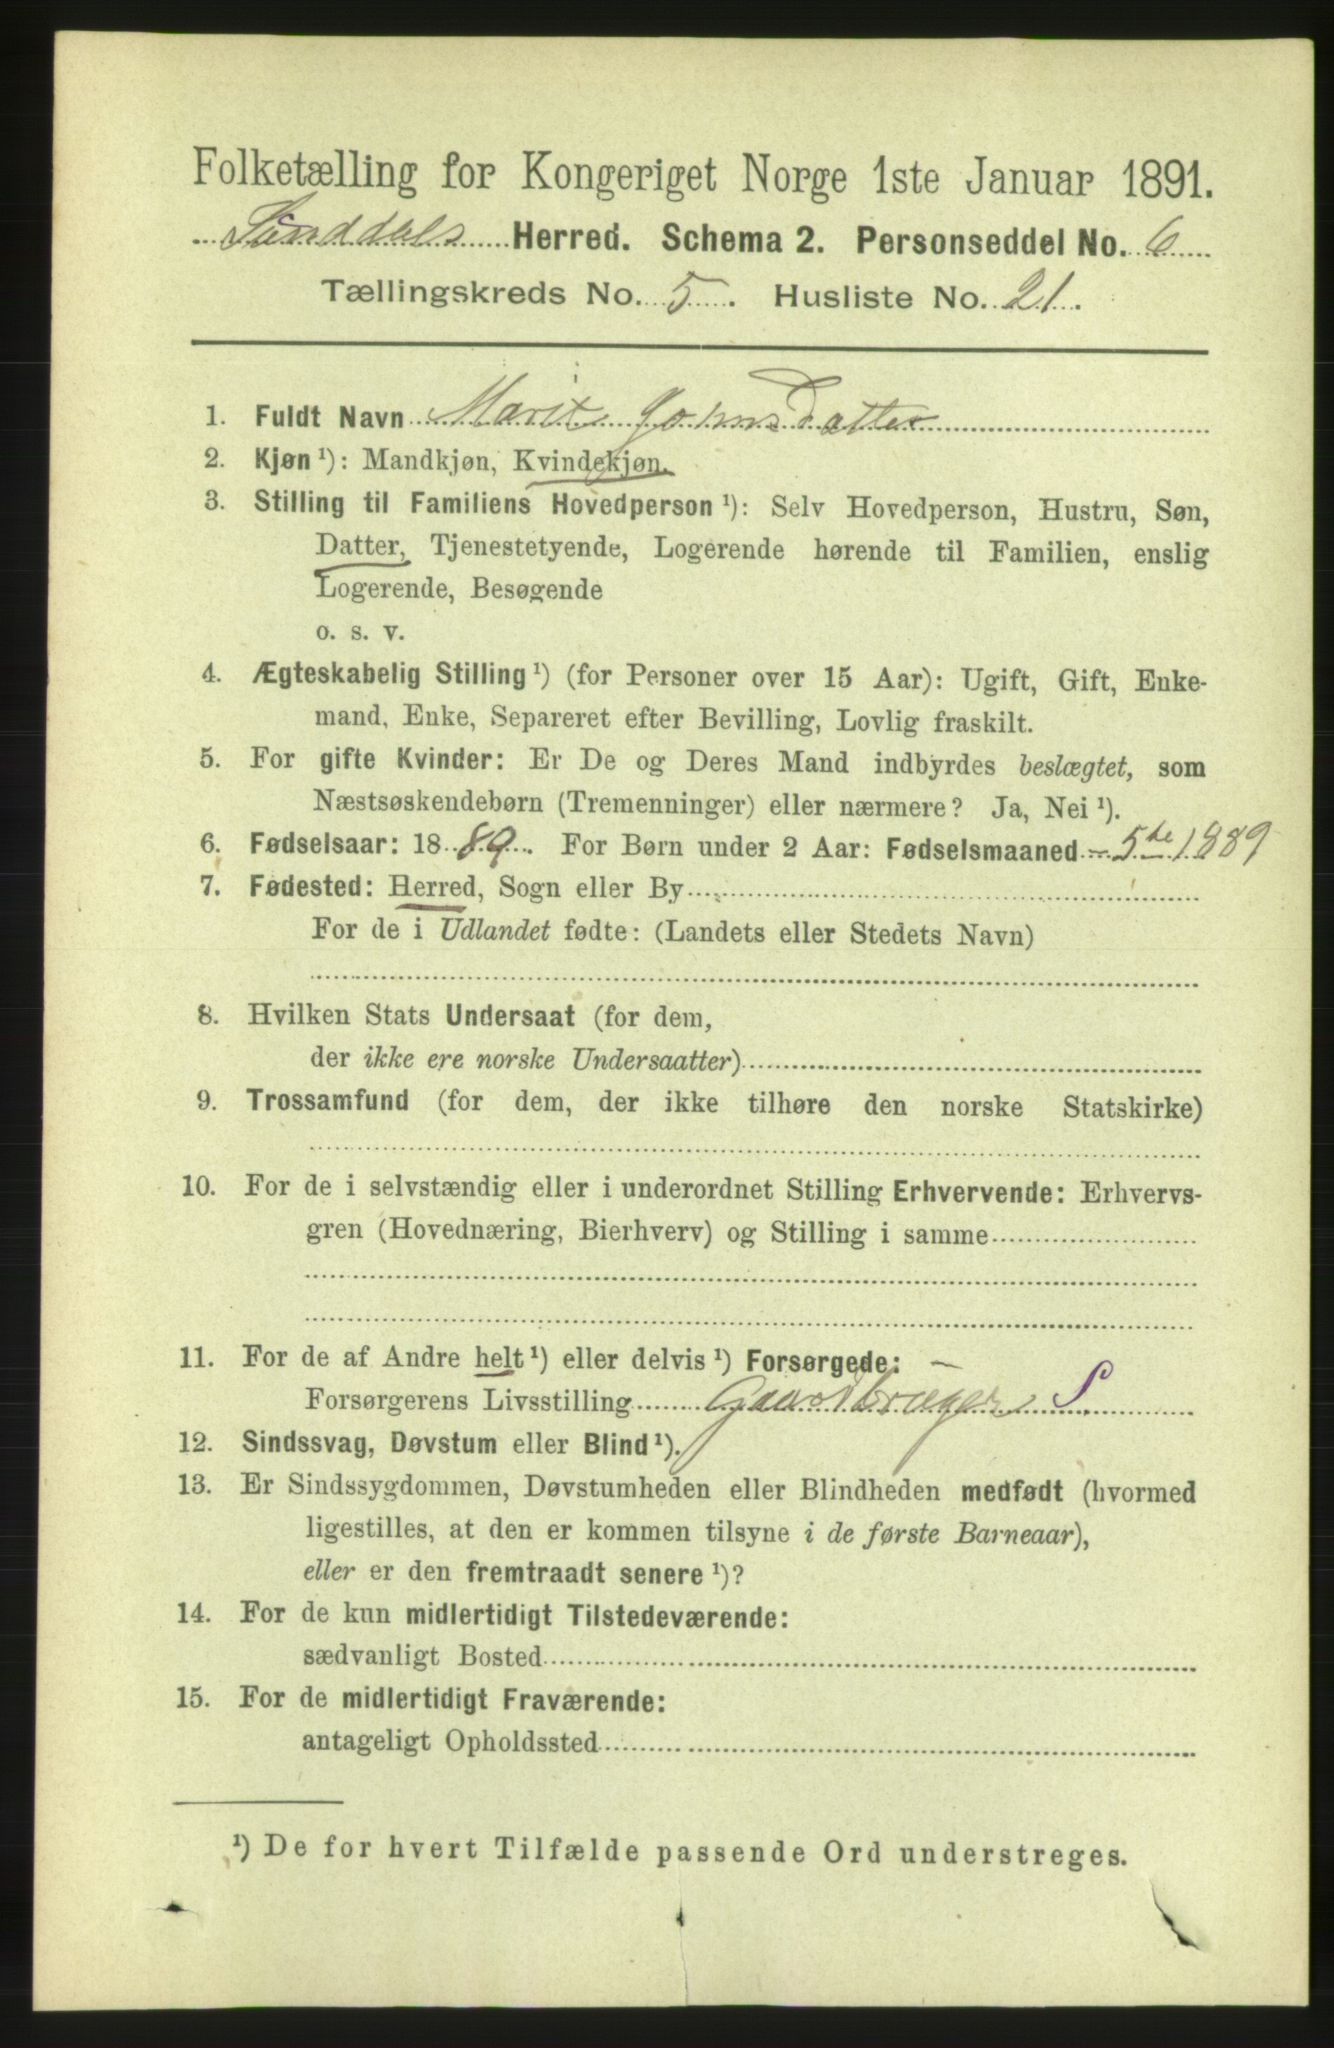 Folketælling for Kongeriget Norge 1ste Januar 1891.
Sunddals Herred. Schema 2. Personseddel No. 6
Tællingskreds No. 5. Husliste No. 21.
1. Fuldt Navn Marit Johnsdatter
2. Kjøn ¹): Mandkjøn, Kvindekjøn.
3. Stilling til Familiens Hovedperson ¹): Selv Hovedperson, Hustru, Søn,
Datter, Tjenestetyende, Logerende hørende til Familien, enslig
Logerende, Besøgende
o. s. v.
4. Ægteskabelig Stilling ¹) (for Personer over 15 Aar): Ugift, Gift, Enke-
mand, Enke, Separeret efter Bevilling, Lovlig fraskilt.
5. For gifte Kvinder: Er De og Deres Mand indbyrdes beslægtet, som
Næstsøskendebørn (Tremenninger) eller nærmere? Ja, Nei ¹).
6. Fødselsaar: 1889. For Børn under 2 Aar: Fødselsmaaned - 5te 1889
7. Fødested: Herred, Sogn eller By
For de i Udlandet fødte: (Landets eller Stedets Navn)
8. Hvilken Stats Undersaat (for dem,
der ikke ere norske Undersaatter)
9. Trossamfund (for dem, der ikke tilhøre den norske Statskirke)
10. For de i selvstændig eller i underordnet Stilling Erhvervende: Erhvervs-
gren (Hovednæring, Bierhverv) og Stilling i samme
11. For de af Andre helt ¹) eller delvis ¹) Forsørgede: -
Forsørgerens Livsstilling Gaardbruger S
12. Sindssvag, Døvstum eller Blind ¹).
13. Er Sindssygdommen, Døvstumheden eller Blindheden medfødt (hvormed
ligestilles, at den er kommen tilsyne i de første Barneaar),
eller er den fremtraadt senere ¹)?
14. For de kun midlertidigt Tilstedeværende:
sædvanligt Bosted
15. For de midlertidigt Fraværende:
antageligt Opholdssted
¹) De for hvert Tilfælde passende Ord understreges.